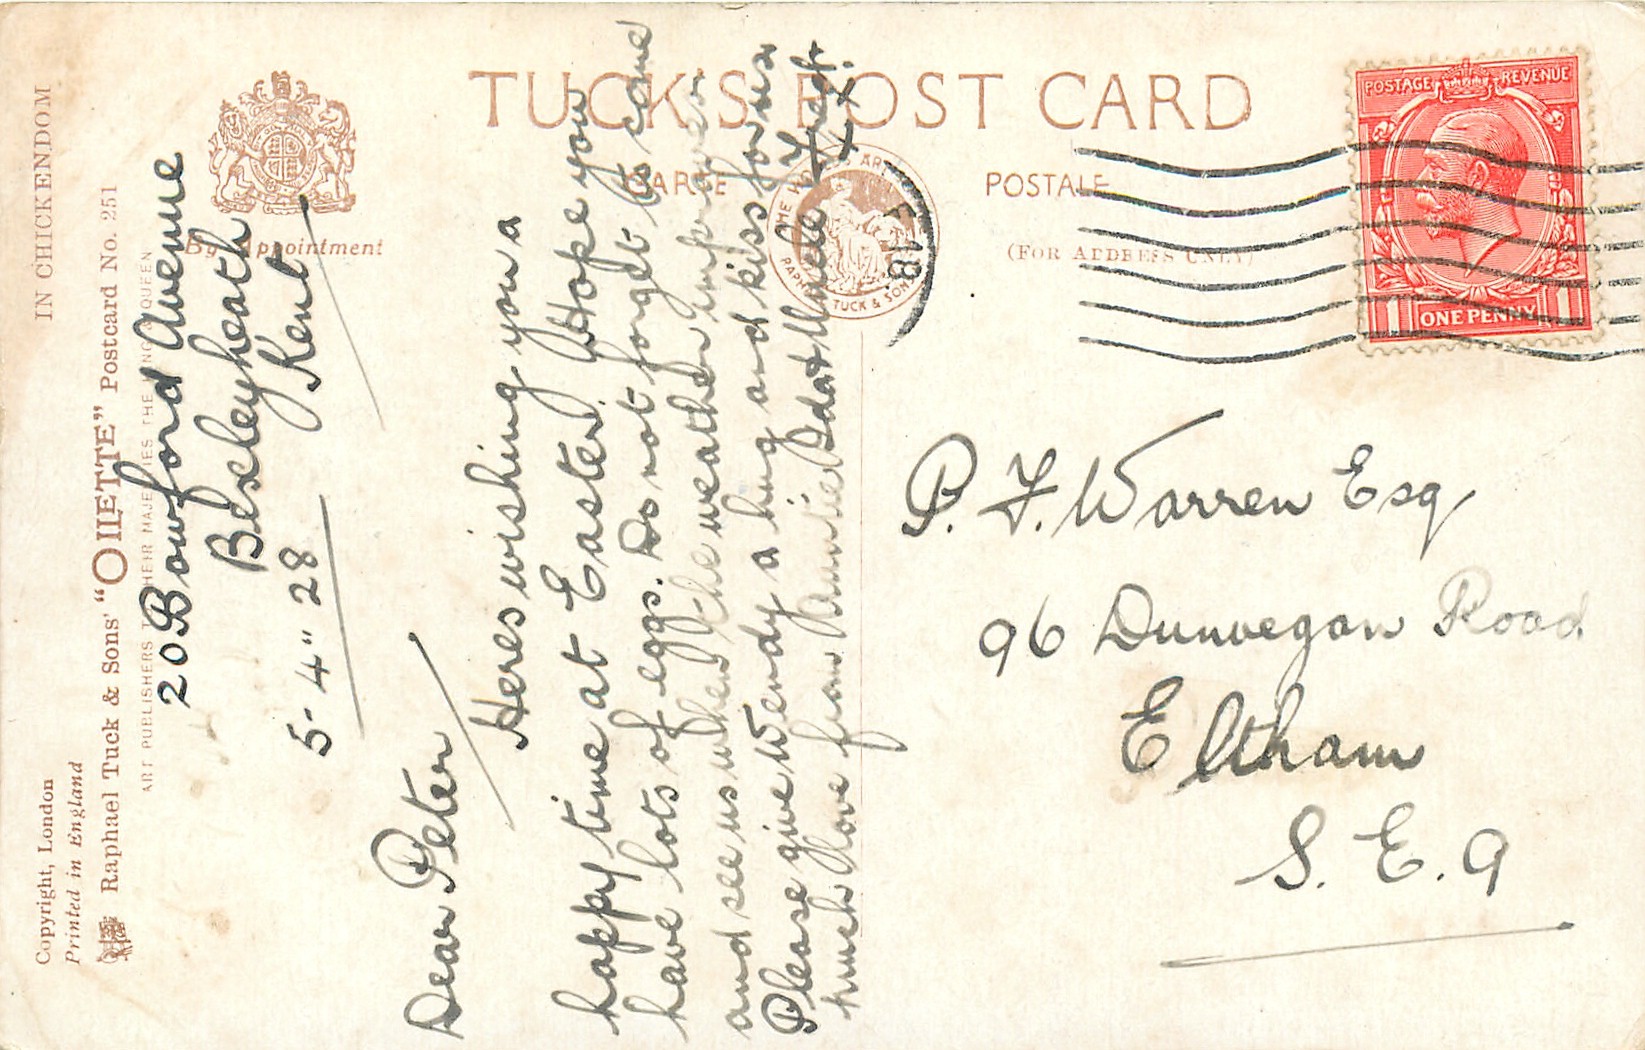 IN CHICKENDOM
Copyright, London
Printed in England
Raphael Tuck & Sons' "OILETTE" Postcard No. 251
ART PUBLISHERS TO THEIR MAJESTIES THE KING QUEEN
By Appointment
TUCK'S POST CARD
CARTE POSTALE
(FOR ADDRESS ONLY)
RAPHAEL TUCK & SONS
POSTAGE REVENUE
1 ONE PENNY 1
20 Bowford Avenue
Bexleyheath
Kent
5-4" 28
Dear Peter
Heres wishing you a
happy time at Easter. Hope you
have lots of eggs. Do not forget to come
and see us when the weather improves
Please give Wendy a hug and kiss for us
much love from Auntie Ida & Uncle Fred.
P. F. Warren Esq
96 Dunvegan Road
Eltham
S. E. 9